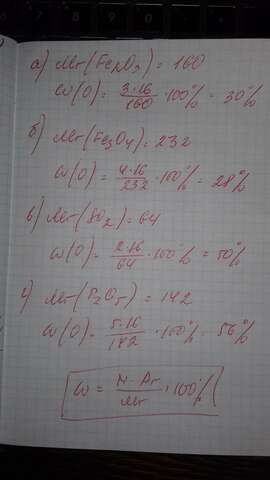 а) Mr(Fe2O3) = 160
w(O) = 3·16/160 · 100% = 30%
б) Mr(Fe3O4) = 232
w(O) = 4·16/232 · 100% = 28%
в) Mr(SO2) = 64
w(O) = 2·16/64 · 100% = 50%
г) Mr(P2O5) = 142
w(O) = 5·16/142 · 100% = 56%
w = N·Ar/Mr · 100%